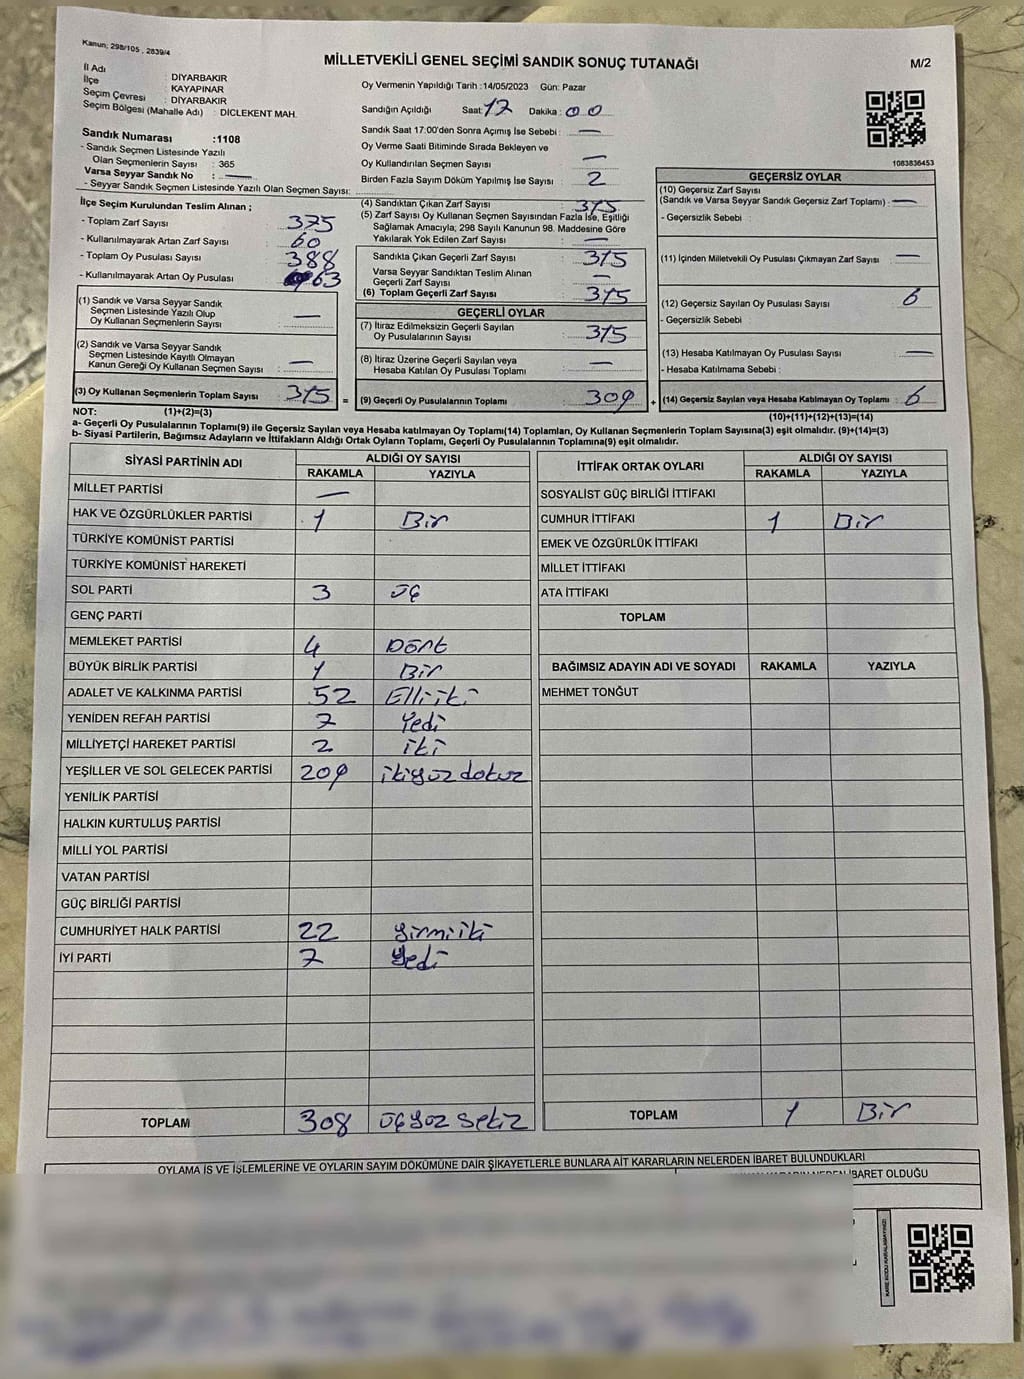 Kanun; 298/105 , 2839/4
MİLLETVEKİLİ GENEL SEÇİMİ SANDIK SONUÇ TUTANAĞI
M/2
İl Adı : DİYARBAKIR
İlçe : KAYAPINAR
Seçim Çevresi : DİYARBAKIR
Seçim Bölgesi (Mahalle Adı) : DİCLEKENT MAH.
Sandık Numarası :1108
- Sandık Seçmen Listesinde Yazılı
Olan Seçmenlerin Sayısı : 365
Varsa Seyyar Sandık No : —
- Seyyar Sandık Seçmen Listesinde Yazılı Olan Seçmen Sayısı:
Oy Vermenin Yapıldığı Tarih :14/05/2023 Gün: Pazar
Sandığın Açıldığı Saat: 17 Dakika : 00
Sandık Saat 17:00'den Sonra Açımış İse Sebebi : —
Oy Verme Saati Bitiminde Sırada Bekleyen ve
Oy Kullandırılan Seçmen Sayısı : —
Birden Fazla Sayım Döküm Yapılmış İse Sayısı : 2
1083836453
İlçe Seçim Kurulundan Teslim Alınan ;
- Toplam Zarf Sayısı : 375
- Kullanılmayarak Artan Zarf Sayısı : 60
- Toplam Oy Pusulası Sayısı : 388
- Kullanılmayarak Artan Oy Pusulası : 63
(1) Sandık ve Varsa Seyyar Sandık
Seçmen Listesinde Yazılı Olup
Oy Kullanan Seçmenlerin Sayısı : —
(2) Sandık ve Varsa Seyyar Sandık
Seçmen Listesinde Kayıtlı Olmayan
Kanun Gereği Oy Kullanan Seçmen Sayısı : —
(3) Oy Kullanan Seçmenlerin Toplam Sayısı : 315 =
(4) Sandıktan Çıkan Zarf Sayısı : 315
(5) Zarf Sayısı Oy Kullanan Seçmen Sayısından Fazla İse, Eşitliği
Sağlamak Amacıyla; 298 Sayılı Kanunun 98. Maddesine Göre
Yakılarak Yok Edilen Zarf Sayısı : —
Sandıkta Çıkan Geçerli Zarf Sayısı : 315
Varsa Seyyar Sandıktan Teslim Alınan
Geçerli Zarf Sayısı : —
(6) Toplam Geçerli Zarf Sayısı : 315
GEÇERLİ OYLAR
(7) İtiraz Edilmeksizin Geçerli Sayılan
Oy Pusulalarının Sayısı : 315
(8) İtiraz Üzerine Geçerli Sayılan veya
Hesaba Katılan Oy Pusulası Toplamı : —
(9) Geçerli Oy Pusulalarının Toplamı : 309 +
GEÇERSİZ OYLAR
(10) Geçersiz Zarf Sayısı
(Sandık ve Varsa Seyyar Sandık Geçersiz Zarf Toplamı) : —
- Geçersizlik Sebebi :
(11) İçinden Milletvekili Oy Pusulası Çıkmayan Zarf Sayısı : —
(12) Geçersiz Sayılan Oy Pusulası Sayısı : 6
- Geçersizlik Sebebi :
(13) Hesaba Katılmayan Oy Pusulası Sayısı : —
- Hesaba Katılmama Sebebi :
(14) Geçersiz Sayılan veya Hesaba Katılmayan Oy Toplamı : 6
NOT: (1)+(2)=(3)
(10)+(11)+(12)+(13)=(14)
a- Geçerli Oy Pusulalarının Toplamı(9) ile Geçersiz Sayılan veya Hesaba katılmayan Oy Toplamı(14) Toplamları, Oy Kullanan Seçmenlerin Toplam Sayısına(3) eşit olmalıdır. (9)+(14)=(3)
b- Siyasi Partilerin, Bağımsız Adayların ve İttifakların Aldığı Ortak Oyların Toplamı, Geçerli Oy Pusulalarının Toplamına(9) eşit olmalıdır.
SİYASİ PARTİNİN ADI ALDIĞI OY SAYISI
RAKAMLA YAZIYLA
MİLLET PARTİSİ —
HAK VE ÖZGÜRLÜKLER PARTİSİ 1 Bir
TÜRKİYE KOMÜNİST PARTİSİ
TÜRKİYE KOMÜNİST HAREKETİ
SOL PARTİ 3 üç
GENÇ PARTİ
MEMLEKET PARTİSİ 4 Dört
BÜYÜK BİRLİK PARTİSİ 1 Bir
ADALET VE KALKINMA PARTİSİ 52 Elliiki
YENİDEN REFAH PARTİSİ 7 Yedi
MİLLİYETÇİ HAREKET PARTİSİ 2 iki
YEŞİLLER VE SOL GELECEK PARTİSİ 209 ikiyüz dokuz
YENİLİK PARTİSİ
HALKIN KURTULUŞ PARTİSİ
MİLLİ YOL PARTİSİ
VATAN PARTİSİ
GÜÇ BİRLİĞİ PARTİSİ
CUMHURİYET HALK PARTİSİ 22 yirmiiki
İYİ PARTİ 7 yedi
TOPLAM 308 üçyüz sekiz
İTTİFAK ORTAK OYLARI ALDIĞI OY SAYISI
RAKAMLA YAZIYLA
SOSYALİST GÜÇ BİRLİĞİ İTTİFAKI
CUMHUR İTTİFAKI 1 Bir
EMEK VE ÖZGÜRLÜK İTTİFAKI
MİLLET İTTİFAKI
ATA İTTİFAKI
TOPLAM
BAĞIMSIZ ADAYIN ADI VE SOYADI RAKAMLA YAZIYLA
MEHMET TONĞUT
TOPLAM 1 Bir
OYLAMA İŞ VE İŞLEMLERİNE VE OYLARIN SAYIM DÖKÜMÜNE DAİR ŞİKAYETLERLE BUNLARA AİT KARARLARIN NELERDEN İBARET BULUNDUKLARI
NEDEN İBARET OLDUĞU
KARE KODU KARALAMAYINIZ!